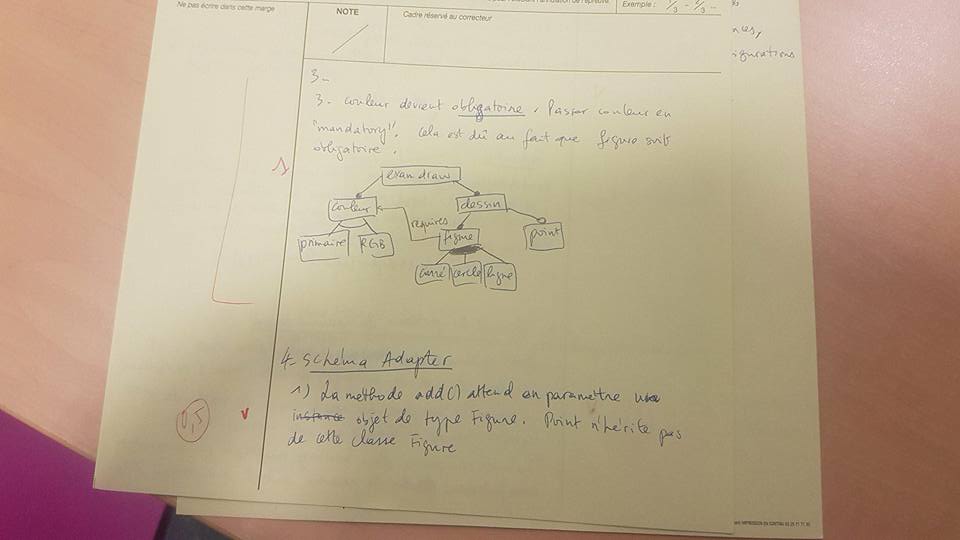 Ne pas écrire dans cette marge
NOTE
Cadre réservé au correcteur
l'annulation de l'épreuve.
Exemple :
nces,
igurations
3-
3- Couleur devient obligatoire. Passer couleur en
"mandatory". Cela est dû au fait que figure soit
obligatoire.
1
exam draw
couleur
dessin
requires
primaire
RGB
figure
point
carré
cercle
ligne
4- Schéma Adapter
1) La méthode add() attend en paramètre une
instance objet de type Figure. Point n'hérite pas
de cette classe Figure
0,5
v